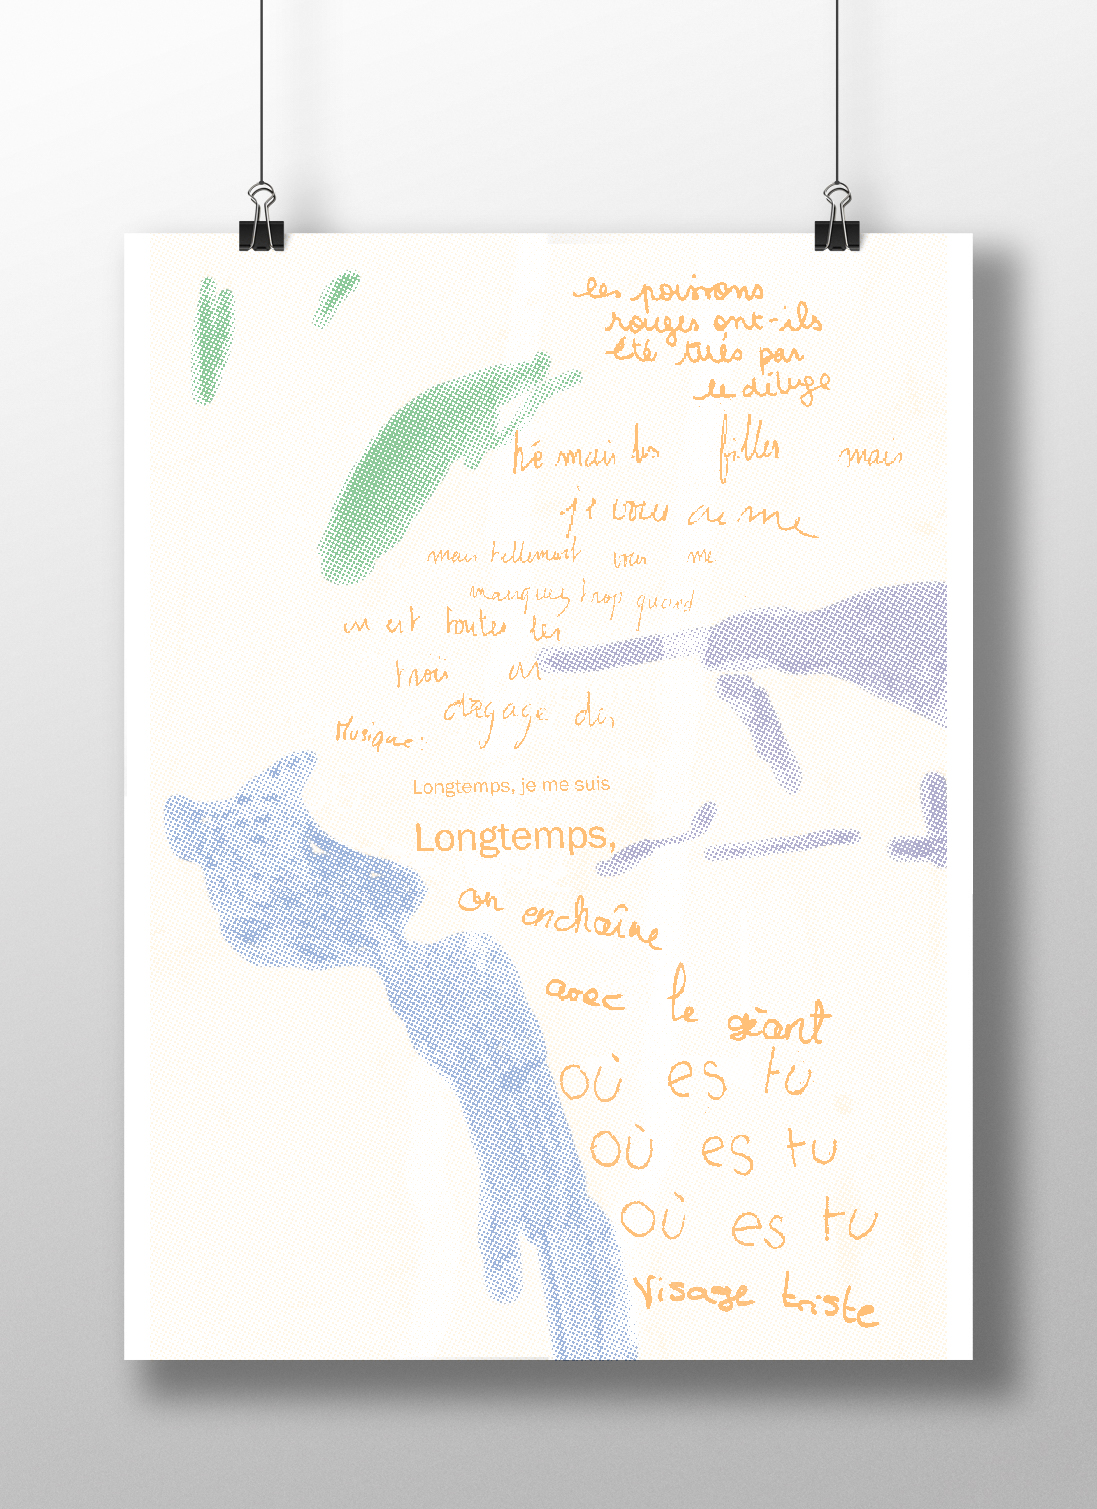 les poissons
rouges ont-ils
été tués par
le déluge
hé mais les filles mais
je vous aime
mais tellement vous me
manquez trop quand
on est toutes les
trois on
dégage des
Musique :
Longtemps, je me suis
Longtemps,
on enchaîne
avec le géant
où es tu
où es tu
où es tu
Visage triste